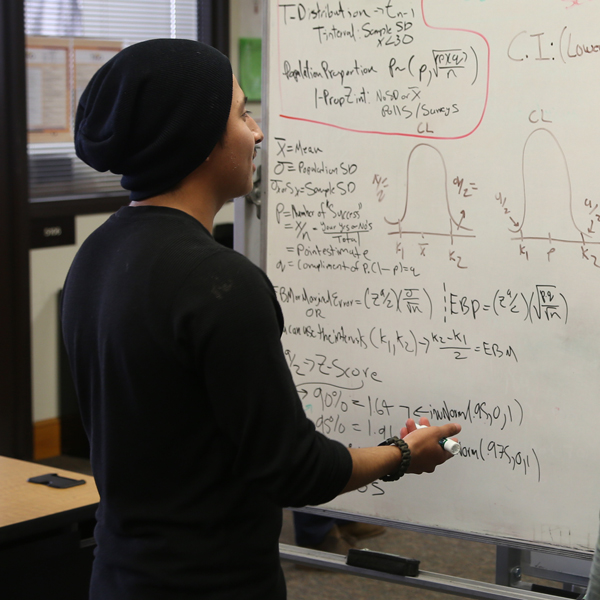 T-Distribution → t n-1
T interval: Sample SD
x<30
Population Proportion P~(P, √(pxq)/n)
1-PropZint: No SD or X̄
Polls/Surveys
C.I: (Low
CL
CL
X̄ = Mean
σ = Population SD
Sx = Sample SD
P = Number of "Success"
= x/n - your yes or No's
Total
= Pointestimate
q = Compliment of P. (1-p)=q
α/2 =
α/2
K1 x̄ K2
K1 P K2
EBM = Marginal Error = (Zα/2)(σ/√n)
EBP = (Zα/2)(√pq/n)
OR
can use the intervals (K1, K2) → K2-K1/2 = EBM
α/2 => Z-Score
→ 90% = 1.64 ← invNorm(.95,0,1)
95% = 1.9
orm(.975,0,1)